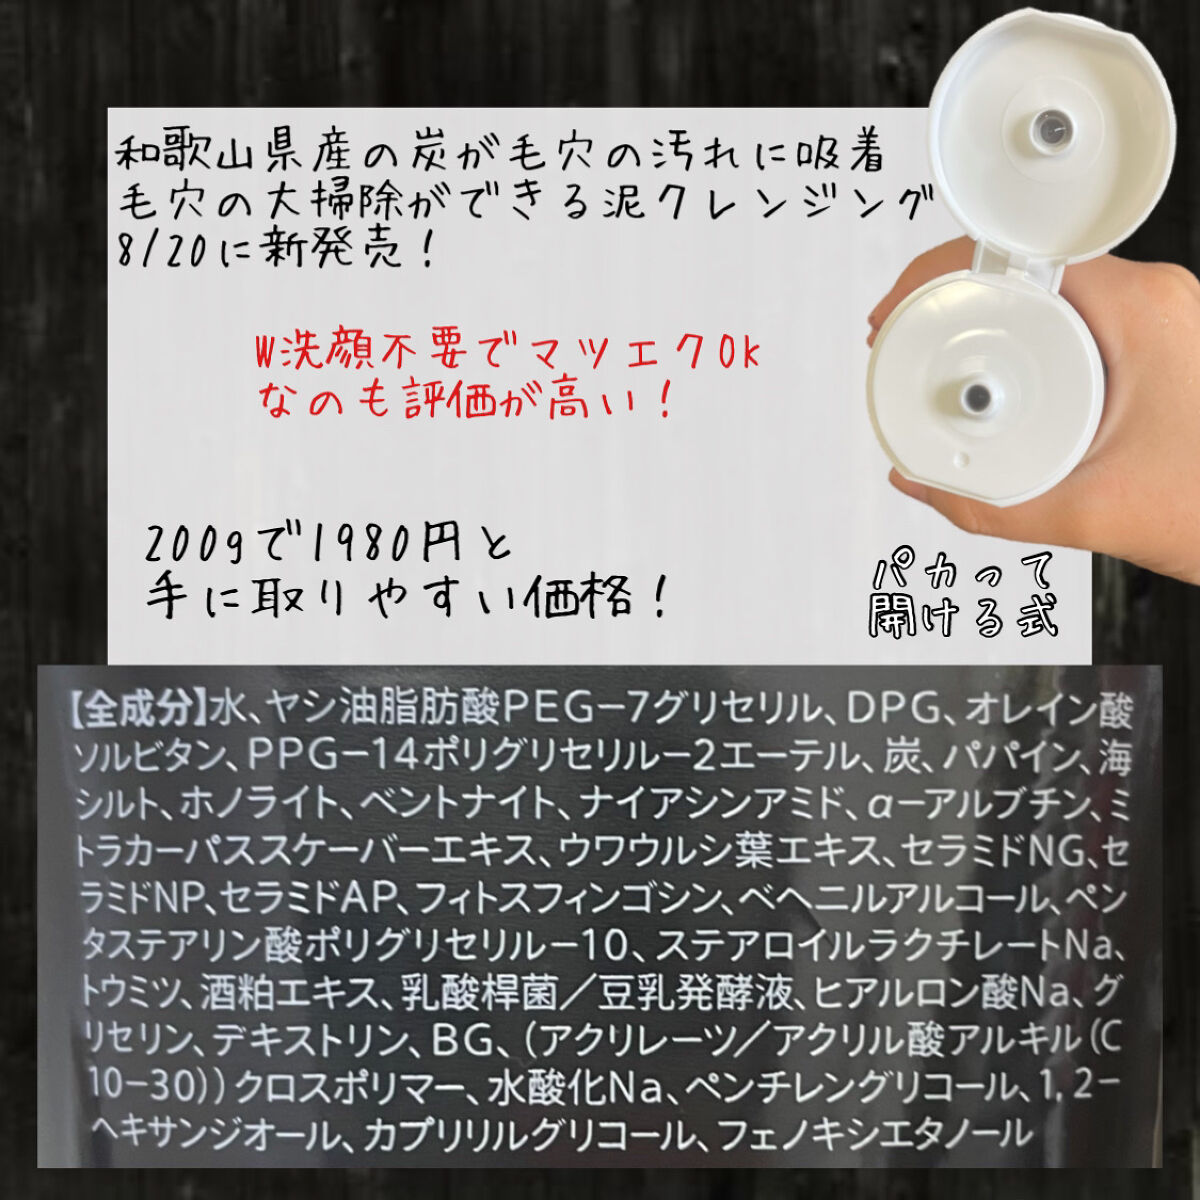 和歌山県産の炭が毛穴の汚れに吸着
毛穴の大掃除ができる泥クレンジング
8/20に新発売！
W洗顔不要でマツエクOk
なのも評価が高い！
200gで1980円と
手に取りやすい価格！
パカって
開ける式
【全成分】水、ヤシ油脂肪酸PEG−7グリセリル、DPG、オレイン酸
ソルビタン、PPG−14ポリグリセリル−2エーテル、炭、パパイン、海
シルト、ホノライト、ベントナイト、ナイアシンアミド、α−アルブチン、ミ
トラカーパススケーバーエキス、ウワウルシ葉エキス、セラミドNG、セ
ラミドNP、セラミドAP、フィトスフィンゴシン、ベヘニルアルコール、ペン
タステアリン酸ポリグリセリル−10、ステアロイルラクチレートNa、
トウミツ、酒粕エキス、乳酸桿菌／豆乳発酵液、ヒアルロン酸Na、グ
リセリン、デキストリン、BG、（アクリレーツ／アクリル酸アルキル（C
10−30））クロスポリマー、水酸化Na、ペンチレングリコール、1，2−
ヘキサンジオール、カプリリルグリコール、フェノキシエタノール